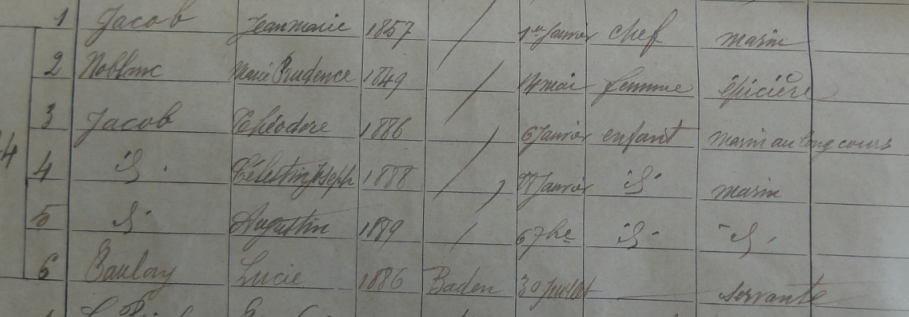 1 Jacob Jean marie 1857 / 1er Janvier chef marin
2 Noblanc Marie Prudence 1849 / mai femme épicière
3 Jacob Théodore 1886 / 6 Janvier enfant marin au long cours
4 id. Célestin Joseph 1888 / Janvier id. marin
5 id. Augustin 1889 / 6 7bre id. id.
6 Lucie 1886 Baden 30 Juillet — servante